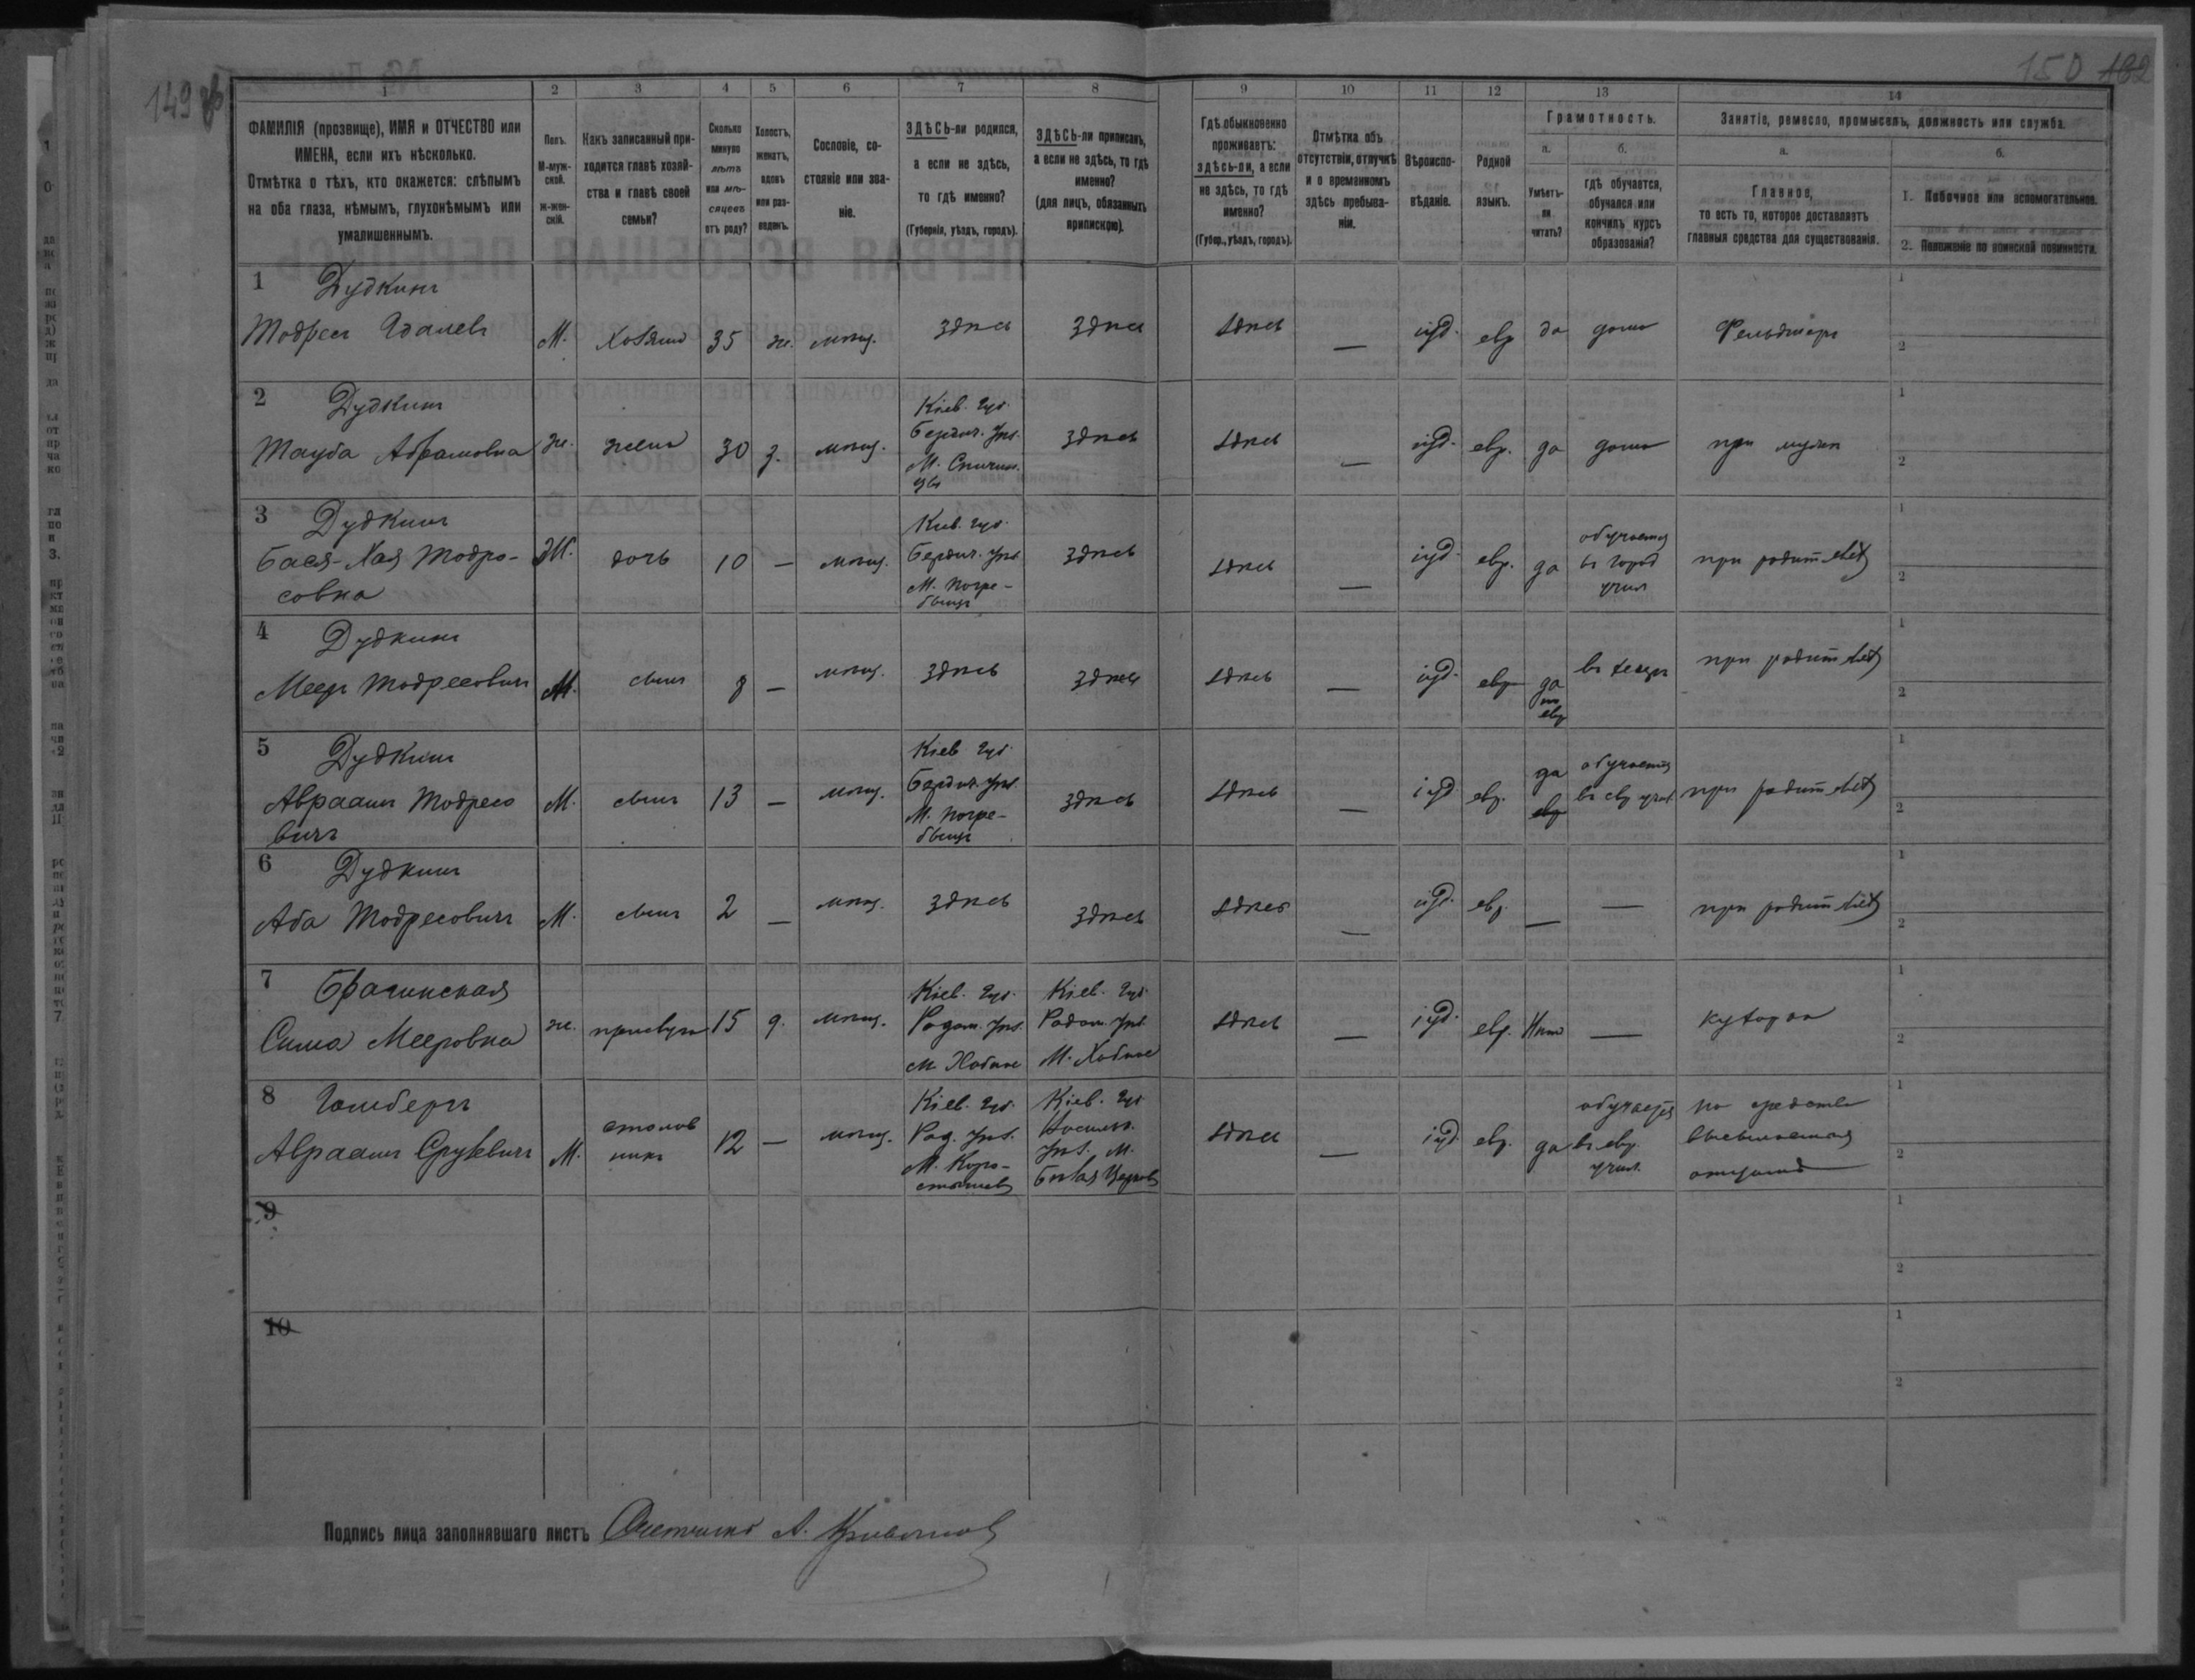 149
150 182
1 2 3 4 5 6 7 8 9 10 11 12 13 14
ФАМИЛІЯ (прозвище), ИМЯ и ОТЧЕСТВО или
ИМЕНА, если ихъ нѣсколько.
Отмѣтка о тѣхъ, кто окажется: слѣпымъ
на оба глаза, нѣмымъ, глухонѣмымъ или
умалишеннымъ.
Полъ.
М-муж-
ской.
ж-жен-
скій.
Какъ записанный при-
ходится главѣ хозяй-
ства и главѣ своей
семьи?
Сколько
минуло
лѣтъ
или мѣ-
сяцевъ
отъ роду?
Холостъ,
женатъ,
вдовъ
или раз-
веденъ.
Сословіе, со-
стояніе или зва-
ніе.
ЗДѢСЬ-ли родился,
а если не здѣсь,
то гдѣ именно?
(Губернія, уѣздъ, городъ).
ЗДѢСЬ-ли приписанъ,
а если не здѣсь, то гдѣ
именно?
(для лицъ, обязанныхъ
припискою).
Гдѣ обыкновенно
проживаетъ:
здѣсь-ли, а если
не здѣсь, то гдѣ
именно?
(Губер., уѣздъ, городъ).
Отмѣтка объ
отсутствіи, отлучкѣ
и о временномъ
здѣсь пребыва-
ніи.
Вѣроиспо-
вѣданіе.
Родной
языкъ.
Грамотность.
а.
Умѣетъ-
ли
читать?
б.
гдѣ обучается,
обучался или
кончилъ курсъ
образованія?
Занятіе, ремесло, промыселъ, должность или служба.
а.
Главное,
то есть то, которое доставляетъ
главныя средства для существованія.
б.
1. Побочное или вспомогательное.
2. Положеніе по воинской повинности.
1 Дудкинъ
Тодресъ Удалевъ М. Хозяинъ 35 ж. мѣщ. здѣсь здѣсь здѣсь — іуд. евр да дома Фельдшеръ
2 Дудкинъ
Тауба Абрамовна ж. жена 30 з. мѣщ.
Кіев. губ.
Бердич. уѣз.
здѣсь здѣсь — іуд. евр. да дома при мужѣ
3 Дудкинъ
Бася-Хая Тодро-
совна
Ж. дочь 10 — мѣщ.
Кіев. губ.
Бердич. уѣз.
М. Погре-
бищѣ
здѣсь здѣсь — іуд. евр. да
обучается
въ город
учил
при родителяхъ
4 Дудкинъ
Мееръ Тодресовичъ М. сынъ 8 — мѣщ. здѣсь здѣсь здѣсь — іуд. евр
да
по
евр
въ хедерѣ при родителяхъ
5 Дудкинъ
Авраамъ Тодресо
вичъ
М. сынъ 13 — мѣщ.
Кіев. губ.
Бердич. уѣз.
М. Погре-
бищѣ
здѣсь здѣсь — іуд евр.
да
евр
обучается
въ евр учил.
при родителяхъ
6 Дудкинъ
Аба Тодресовичъ М. сынъ 2 — мѣщ. здѣсь здѣсь здѣсь — іуд. евр. — — при родителяхъ
7 Брагинская
Сима Мееровна ж. прислуга 15 д. мѣщ.
Кіев. губ.
Радом. уѣз.
М. Хабное
Кіев. губ.
Радом. уѣз.
М. Хабное
здѣсь — іуд. евр. Нѣтъ — кухарка
8 Гольбергъ
Авраамъ Срулевичъ М.
столов
никъ
12 — мѣщ.
Кіев. губ.
Рад. уѣз.
М. Коро-
стышевъ
Кіев. губ
уѣз. М.
Бѣлая Церковь
здѣсь — іуд. евр. да
обучается
въ евр.
учил.
на средства
высылаемыя
отцомъ
9
10
Подпись лица заполнявшаго листъ Счетчикъ А.